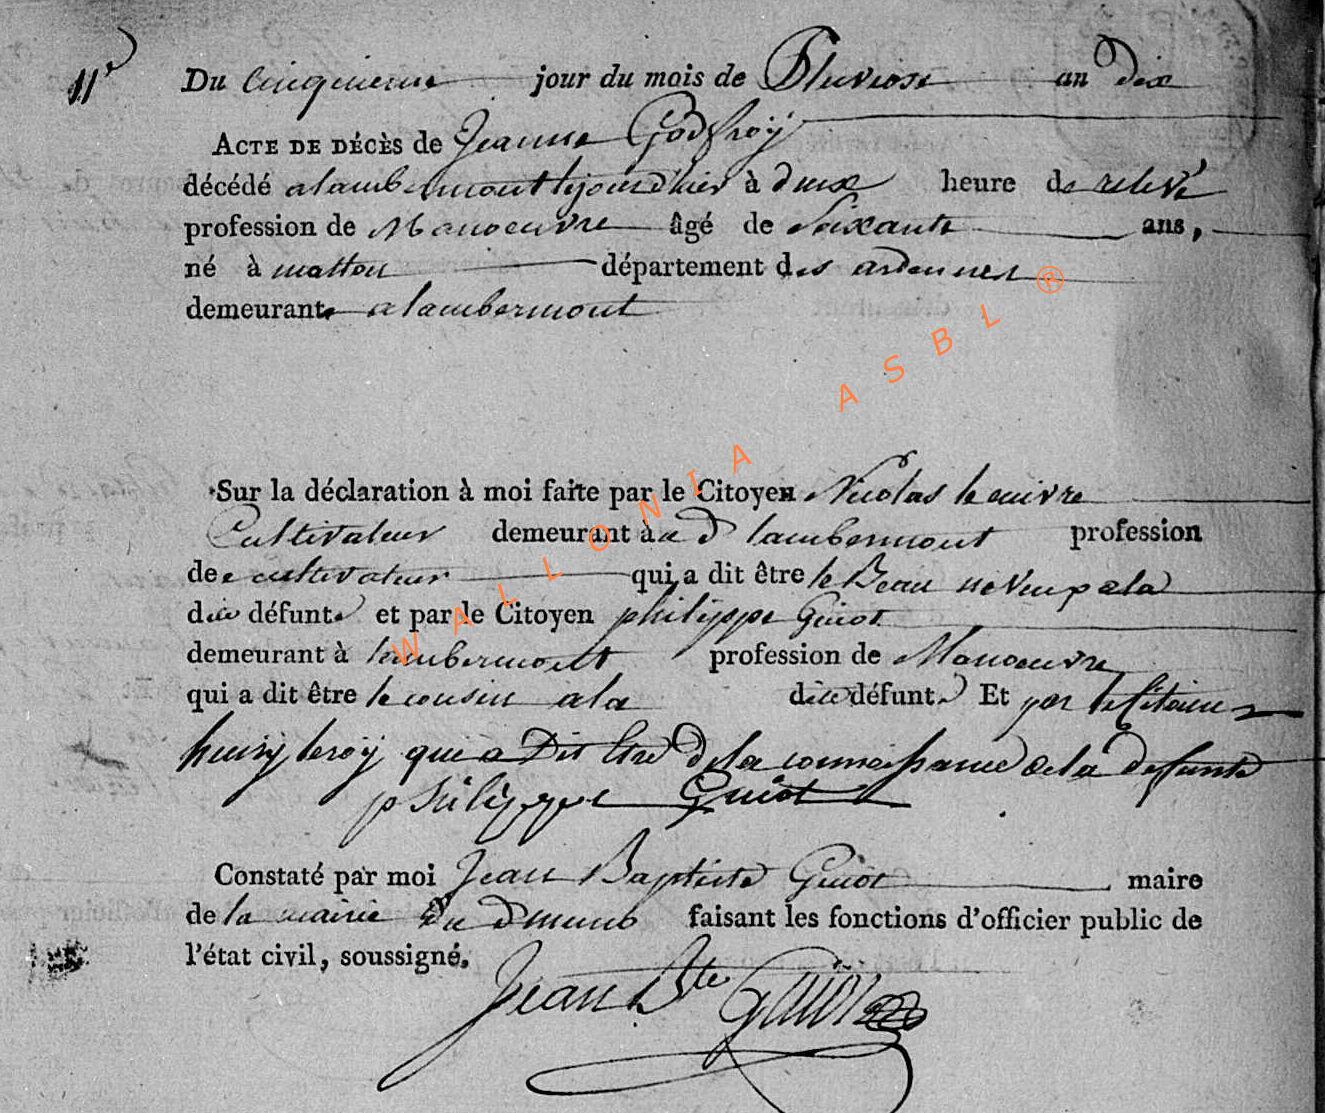 11e Du cinquieme jour du mois de Pluviose an dix
ACTE DE DÉCÈS de Jeanne Godfroy
décédé a lambermont le jourd'hier à deux heure de relevé
profession de Manoeuvre âgé de Soixante ans,
né à matton département des ardennes
demeurante a lambermont
Sur la déclaration à moi faite par le Citoyen Nicolas le cuivre
Cultivateur demeurant à a d lambermont profession
de cultivateur qui a dit être le Beau neveu a la
dite défunte et par le Citoyen philippe Guiot
demeurant à lambermont profession de Manoeuvre
qui a dit être le cousin a la dite défunte Et par le Citoien
leroy qui a Dit Etre de la connoissance de la defunte
philippe Guiot
Constaté par moi Jean Baptiste Guiot maire
de la mairie du d muno faisant les fonctions d'officier public de
l'état civil, soussigné.
Jean Bte Guiot
WALLONIA ASBL ®